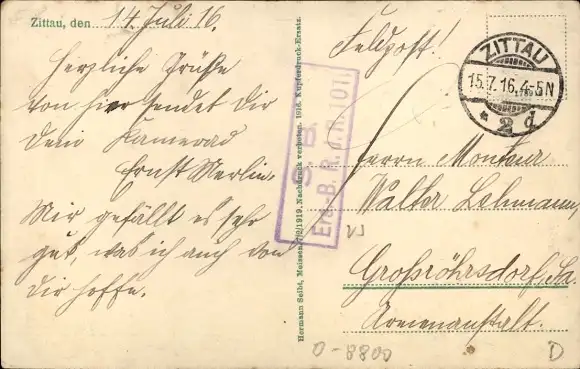 Zittau, den 14 Juli 16.
Herzliche Grüße
von hier sendet Dir
Dein Kamerad
Ernst Merlin.
Mir gefällt es sehr
gut, was ich auch von
Dir hoffe.
Hermann Seibt, Meissen. 1919. Nachdruck verboten. 1916. Kupferdruck-Ersatz.
S. B.
Ers. B. R. I. R. 101
Feldpost!
ZITTAU
15.7.16. 4-5N
* 2 d
Herrn Monteur
Walter Lehmann,
Großröhrsdorf, Sa.
Armenanstalt.
0-8800
D